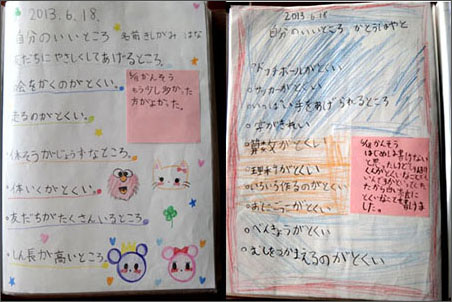 2013.6.18.
自分のいいところ 名前きしがみ はな
友だちにやさしくしてあげるところ。
絵をかくのがとくい。
走るのがとくい。
体そうがじょうずなところ。
体いくがとくい。
友だちがたくさんいるところ
しん長が高いところ。
かんそう
もう少し多かった
方がよかった。
2013.6.18
自分のいいところ かとうはやと
ドッチボールがとくい
サッカーがとくい
いっぱい手をあげられるところ
字がきれい
算数がとくい
理科がとくい
いろいろ作るのがとくい
おにごっこがとくい
べんきょうがとくい
むしをつかまえるのがとくい
かんそう
はじめは書けない
と思ったけど